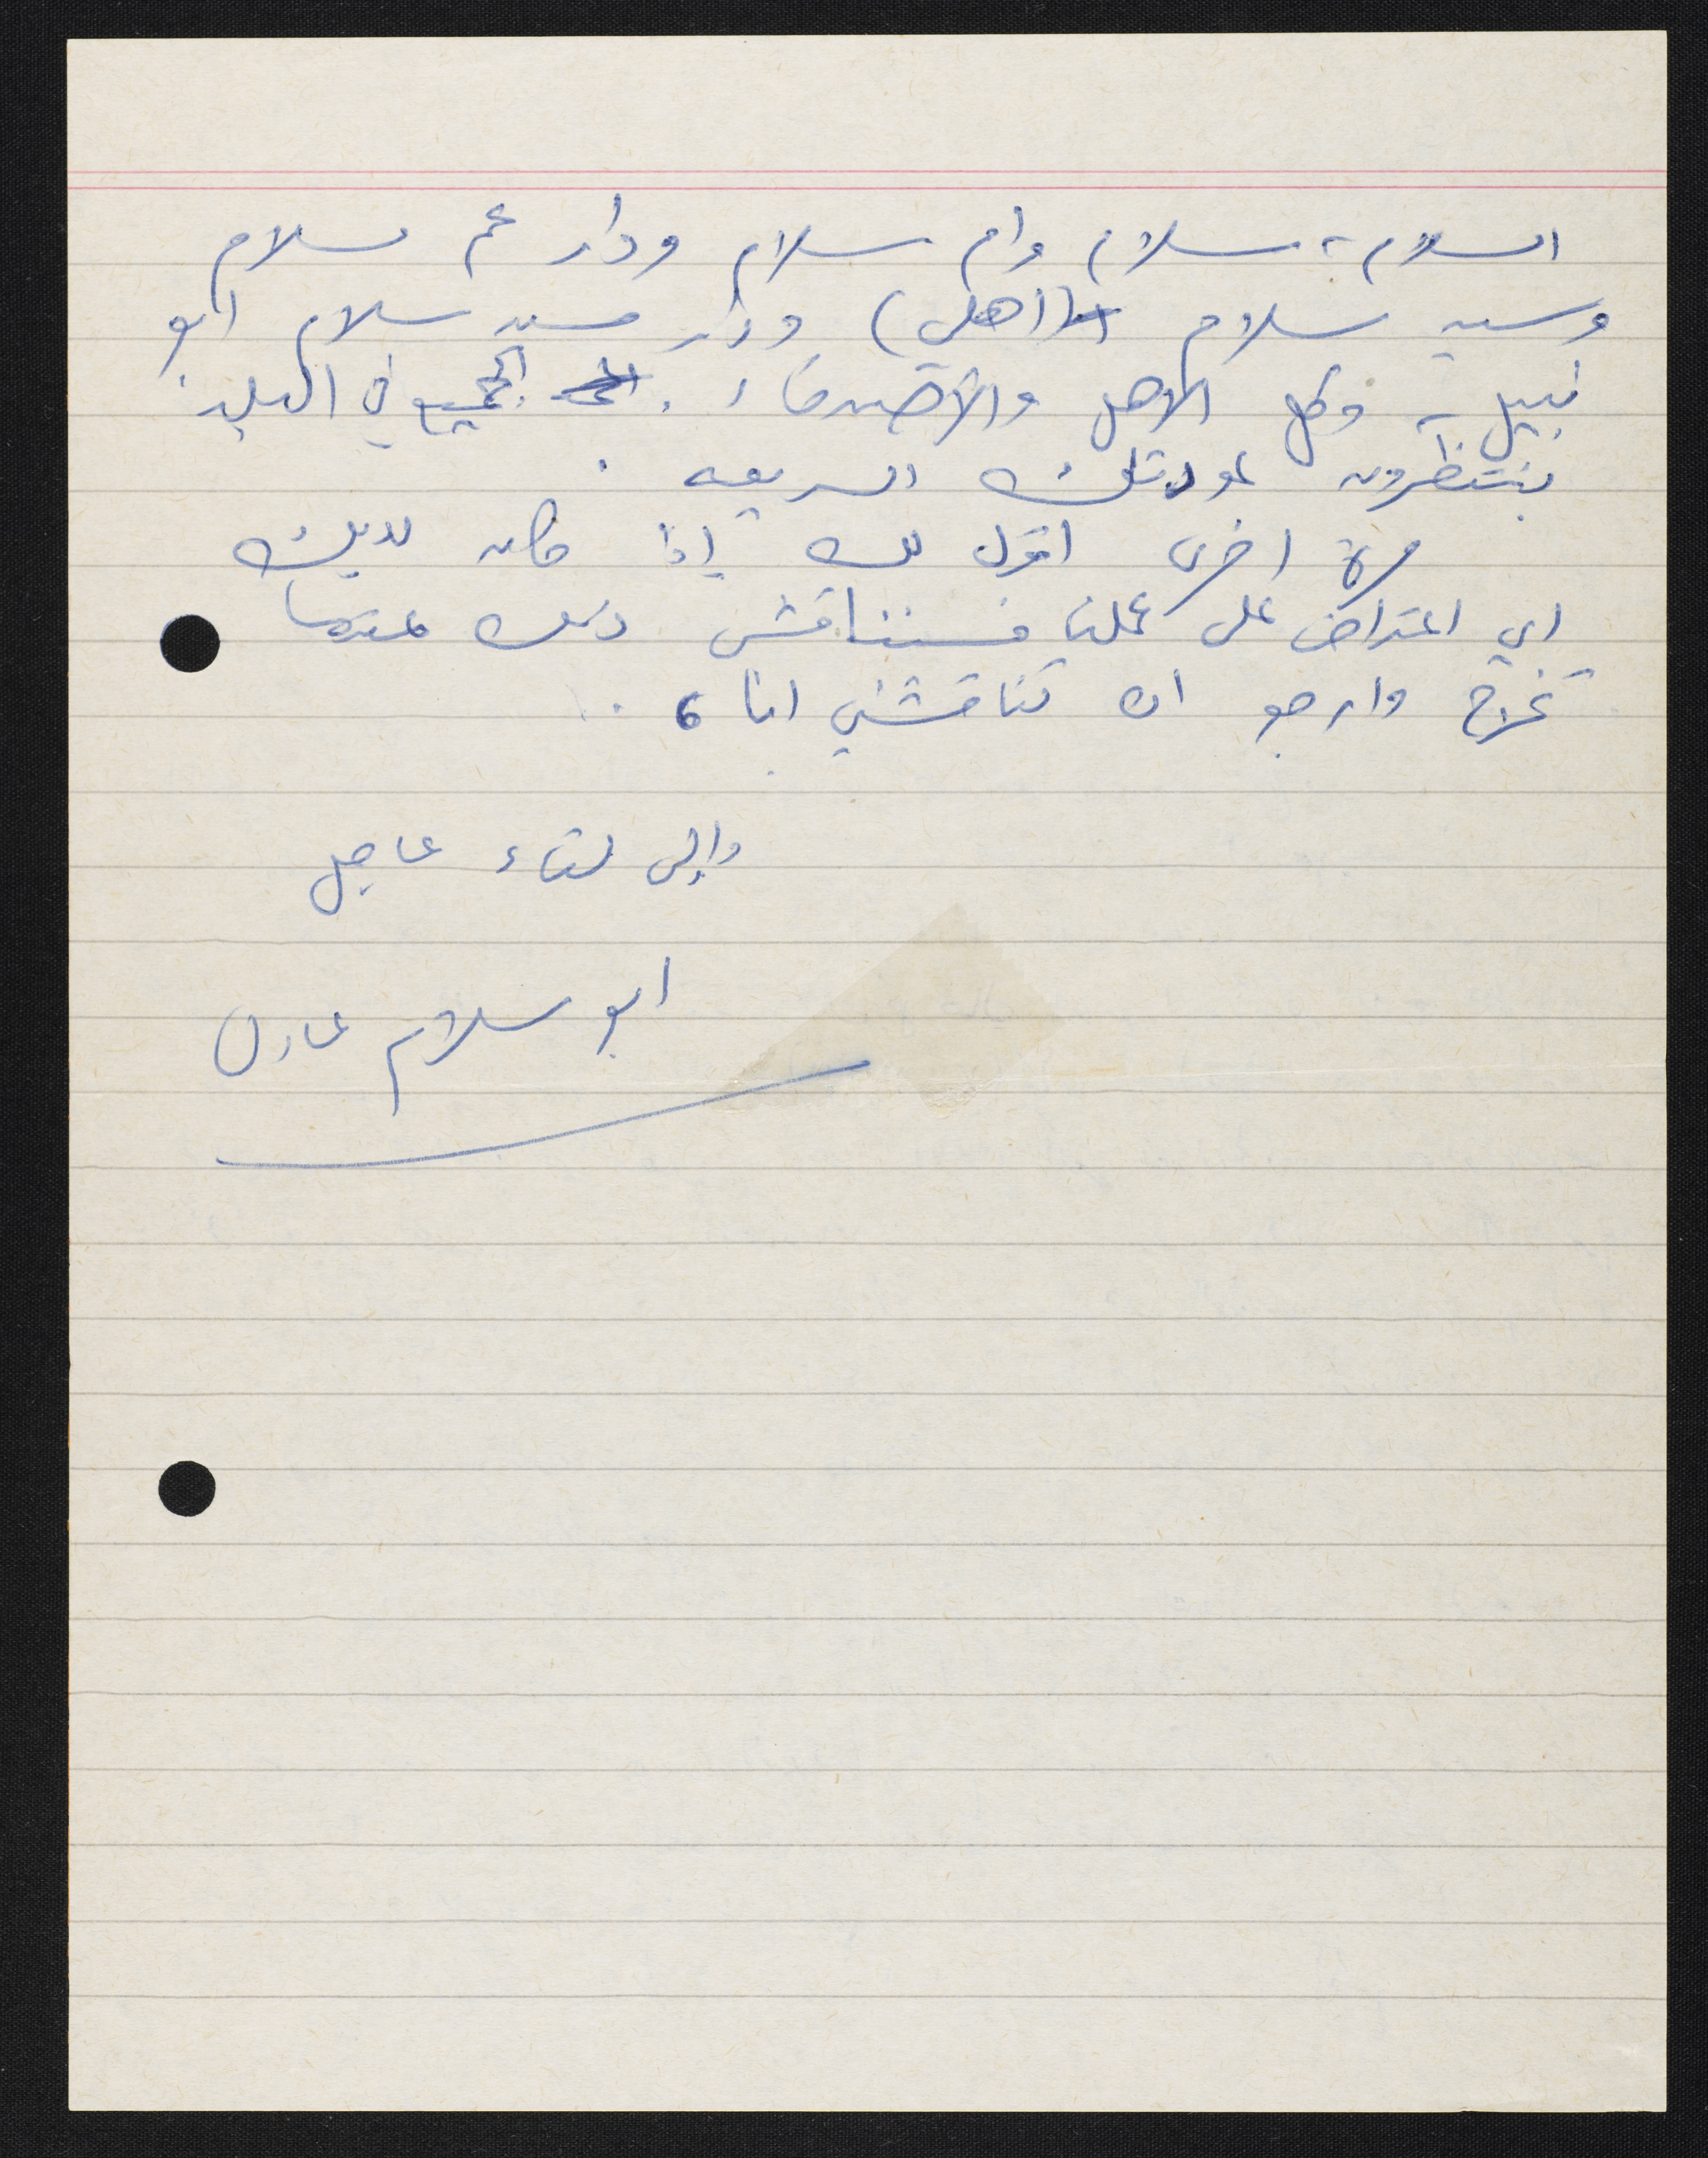 السلام، سلام وام سلام ودار عم سلام
وسيد سلام (اهلي) ودار سيد سلام ابو
نبيل، وكل الاهل والأصدقاء. الجميع في البلد
ينتظرون عودتك السريعه.
مرة اخرى اقول لك إذا كان لديك
اي اعتراض على عملنا فسنناقش ذلك عندما
تخرج وارجو ان تناقشني انا 6.
وإلى لقاء عاجل
ابو سلام عادل